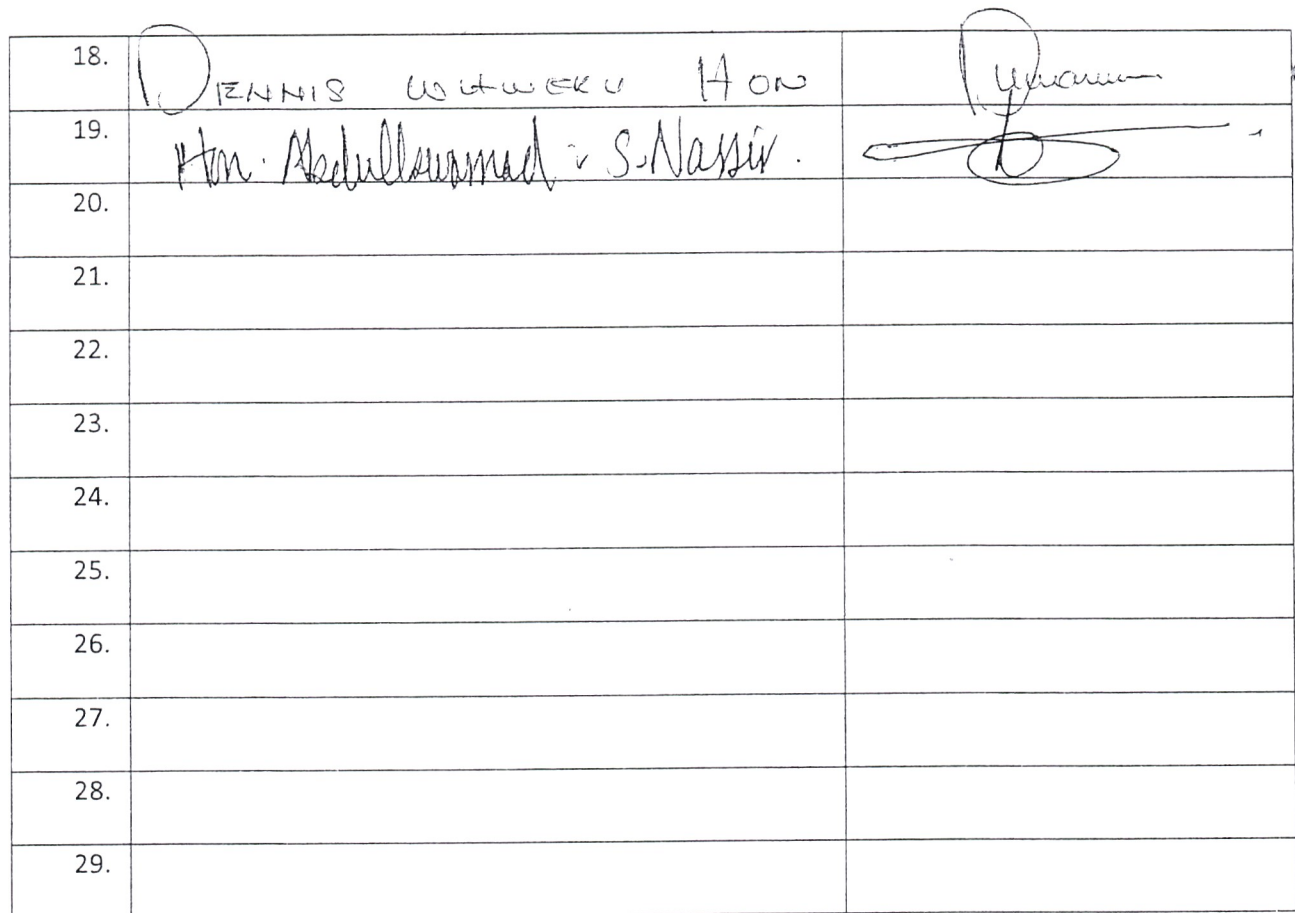 18. DENNIS WAWERU HON
19. Hon. Abdullswamad S. Nassir.
20.
21.
22.
23.
24.
25.
26.
27.
28.
29.